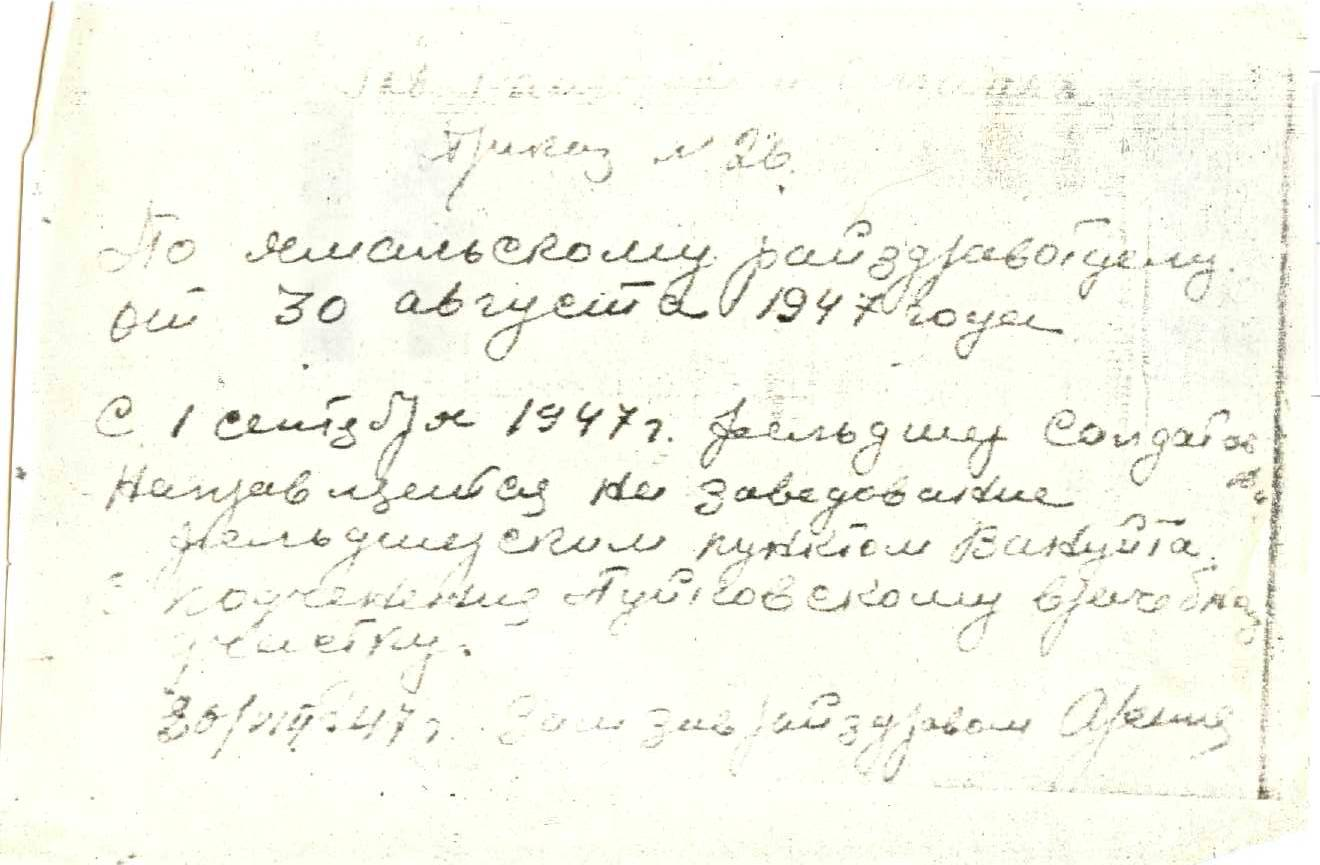 Приказ № 26.
По Ямальскому райздравотделу
от 30 августа 1947 года
С 1 сентября 1947 г. фельдшер Солдатов
направляется на заведование
фельдшерским пунктом Вануйта.
С подчинение Пуйковскому врачебному
участку.
30/VIII-47 г. Зам зав райздравом